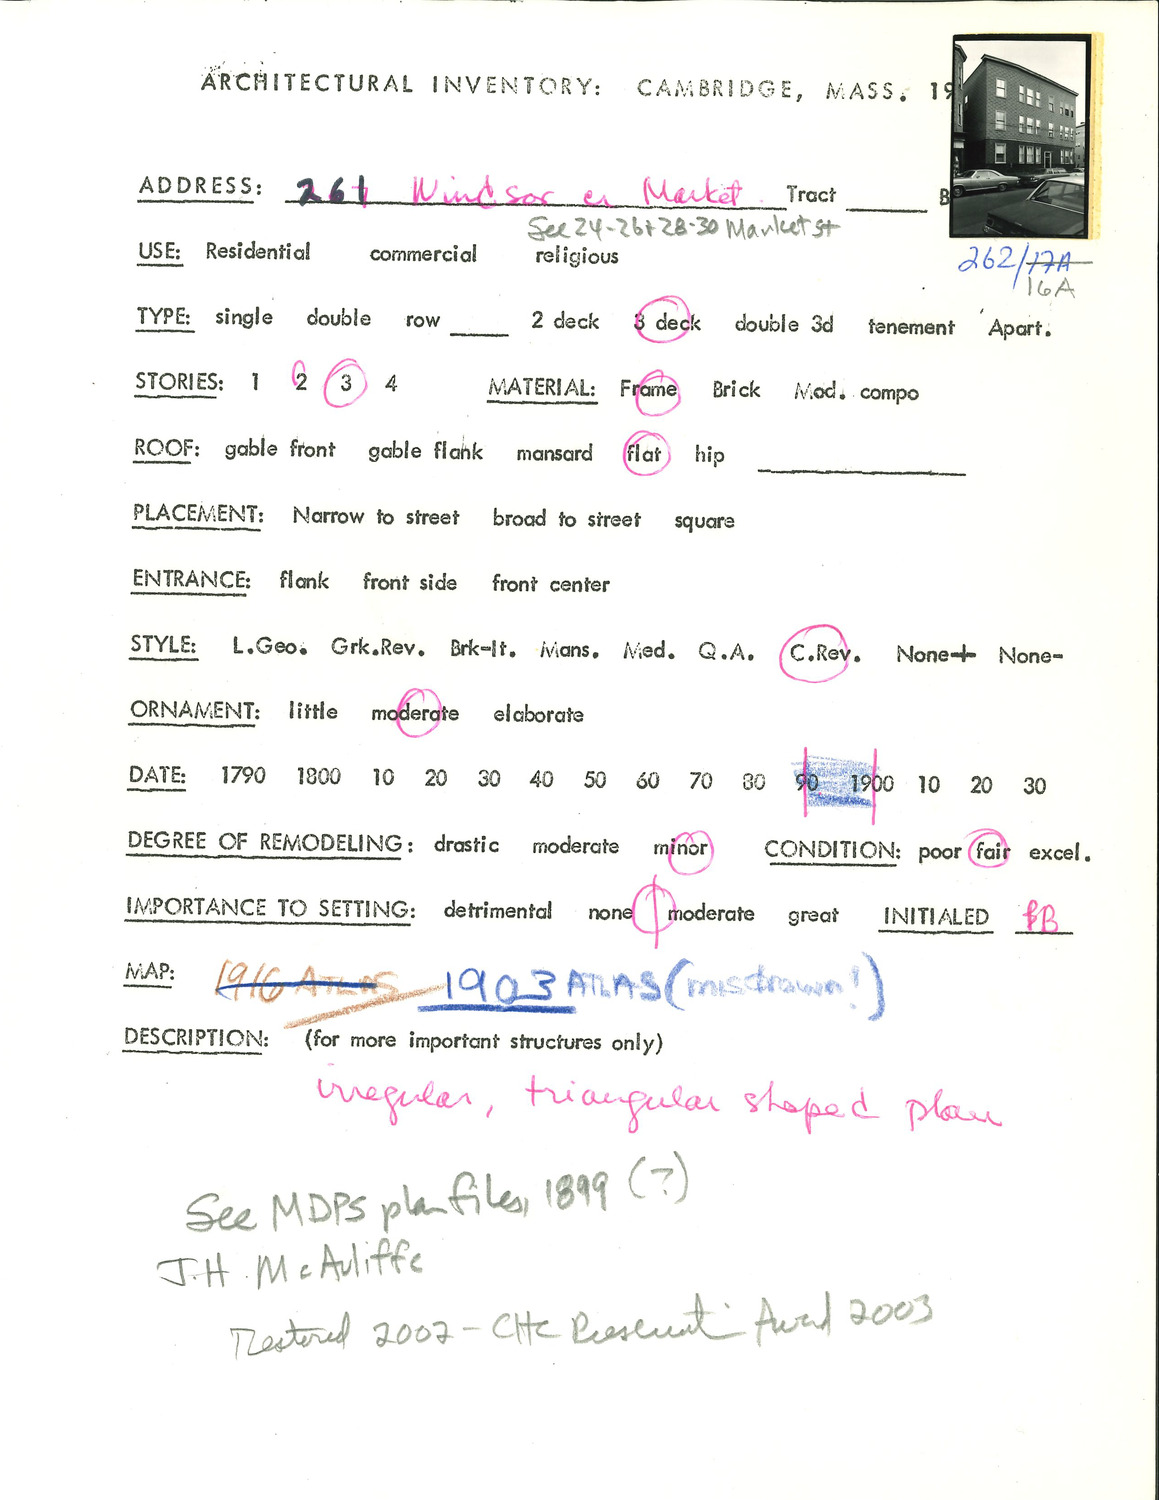 ARCHITECTURAL INVENTORY: CAMBRIDGE, MASS. 19
ADDRESS: 261 Windsor cr Market Tract ____ B
See 24-26+28-30 Market St
262/17A
16A
USE: Residential commercial religious
TYPE: single double row ____ 2 deck 3 deck double 3d tenement Apart.
STORIES: 1 2 3 4 MATERIAL: Frame Brick Mod. compo
ROOF: gable front gable flank mansard flat hip ____
PLACEMENT: Narrow to street broad to street square
ENTRANCE: flank front side front center
STYLE: L.Geo. Grk.Rev. Brk-It. Mans. Med. Q.A. C.Rev. None+ None-
ORNAMENT: little moderate elaborate
DATE: 1790 1800 10 20 30 40 50 60 70 80 90 1900 10 20 30
DEGREE OF REMODELING: drastic moderate minor CONDITION: poor fair excel.
IMPORTANCE TO SETTING: detrimental none moderate great INITIALED BB
MAP: 1916 ATLAS 1903 ATLAS (misdrawn!)
DESCRIPTION: (for more important structures only)
irregular, triangular shaped plan
See MDPS plan files, 1899 (?)
J.H. McAuliffe
Restored 2002 - CHC Preservati Award 2003